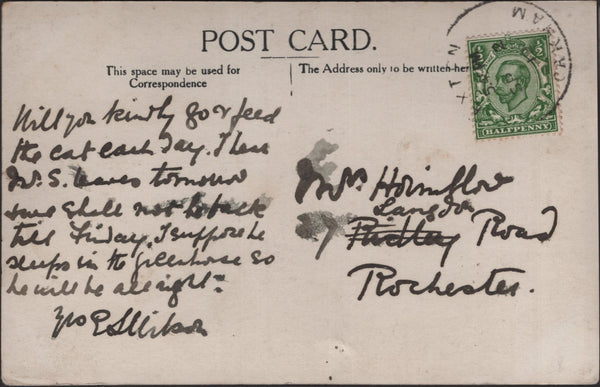 POST CARD.
This space may be used for
Correspondence
The Address only to be written here
HALFPENNY
Will you kindly go & feed
the cat each day. I hear
Mr. S. leaves tomorrow
and shall not be back
till Friday. I suppose he
sleeps in the greenhouse so
he will be all right
Mrs
Langdon
27 Ridley Road
Rochester.